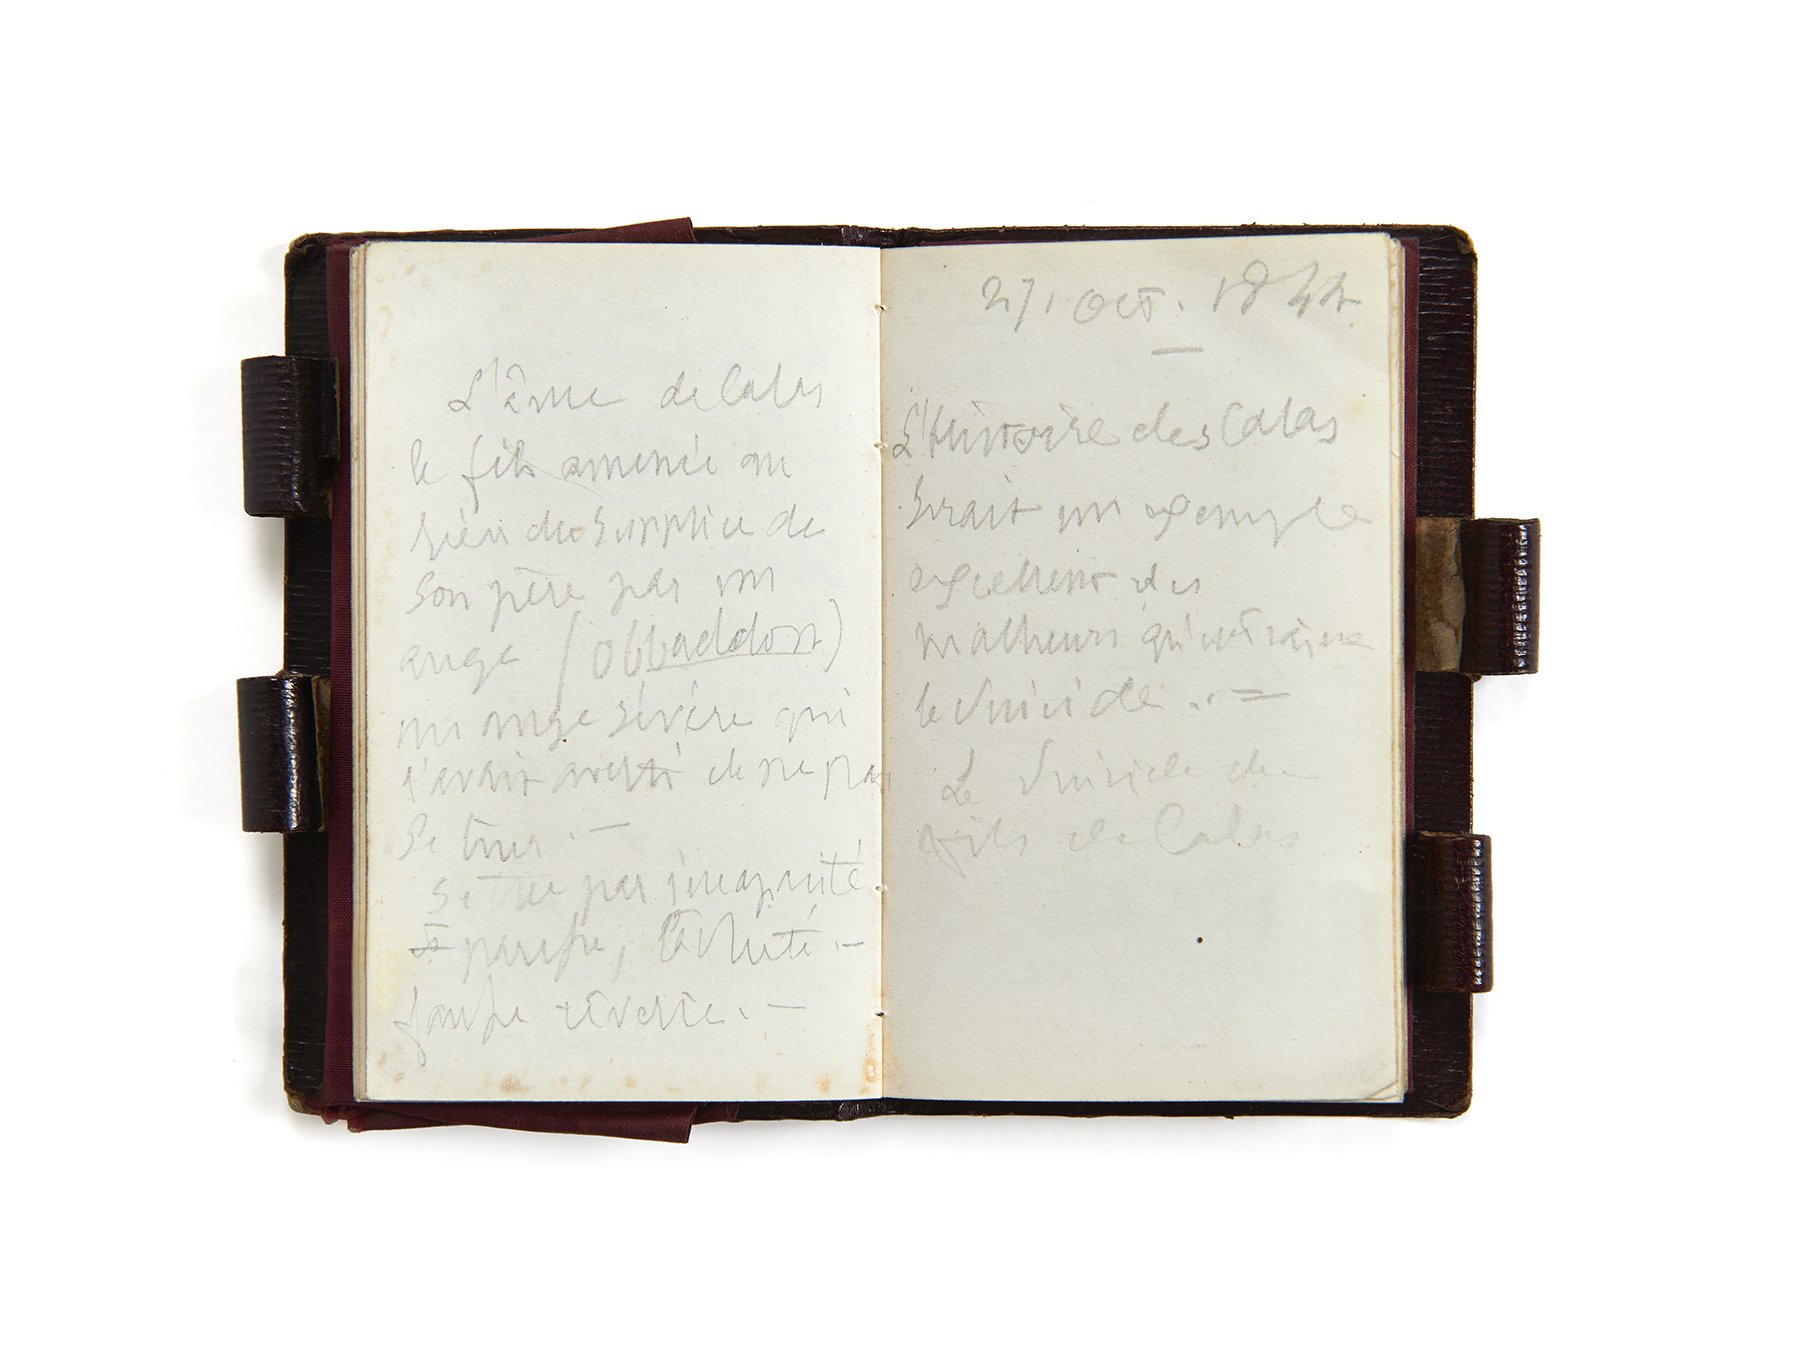 L'âme de Calas
le fils amenée au
pied du supplice de
son père par un
ange (Obbaddon)
un ange sévère qui
l'avait averti de ne pas
se tuer. —
se tue par incapacité
paresse,
fausse rêverie. —
27. oct. 1844
—
L'histoire des Calas
serait un exemple
excellent des
malheurs qu'entraîne
le suicide. . =
Le Suicide de
fils de Calas